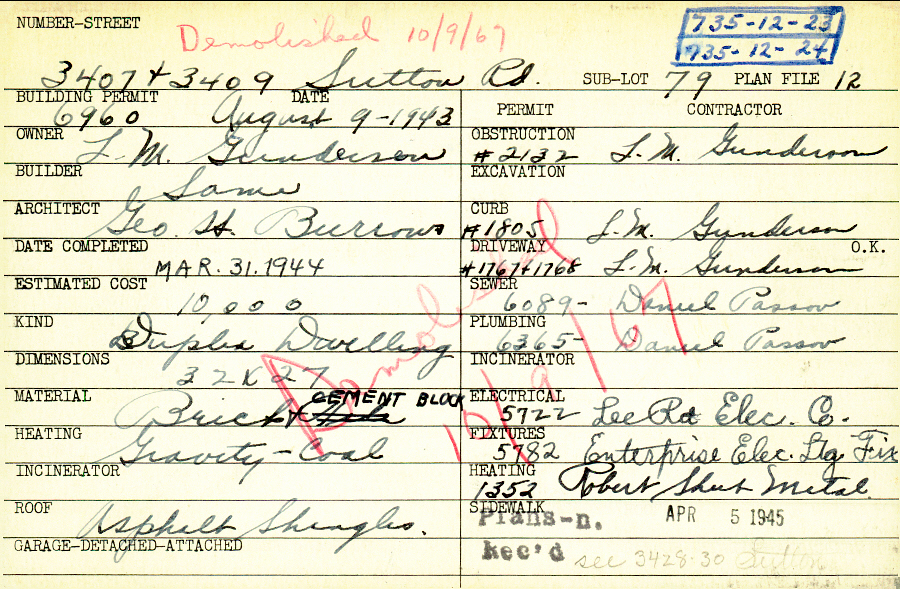 NUMBER-STREET
Demolished 10/9/67
735-12-23
735-12-24
3407+3409 Sutton Rd. SUB-LOT 79 PLAN FILE 12
BUILDING PERMIT DATE
6960 August 9-1943
OWNER L.M. Gunderson
BUILDER Same
ARCHITECT Geo. H. Burrows
DATE COMPLETED
MAR. 31. 1944
ESTIMATED COST
10,000
KIND
Duplex Dwelling
DIMENSIONS
32 X 27
MATERIAL CEMENT BLOCK
Brick +
HEATING
Gravity-Coal
INCINERATOR
ROOF Asphalt Shingles.
GARAGE-DETACHED-ATTACHED
Demolished
10/9/67
PERMIT CONTRACTOR
OBSTRUCTION
#2132 L.M. Gunderson
EXCAVATION
CURB
#1805 L.M. Gunderson
DRIVEWAY O.K.
#1767+1768 L.M. Gunderson
SEWER
6089- Daniel Passov
PLUMBING
6365- Daniel Passov
INCINERATOR
ELECTRICAL
5722 Lee Rd Elec. Co.
FIXTURES
5782 Enterprise Elec. Ltg Fix
HEATING
1352 Robert Sheet Metal
SIDEWALK
Plans-n. APR 5 1945
Rec'd see 3428-30 Sutton